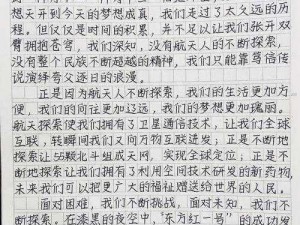 想天开到今天的梦想成真，我们走过了太久远的历
程。但仅仅是时间的积累，并不足以让我们张开双
臂拥抱苍穹，我们深知，没有航天人的不断探索，
没有整个民族不断超越的精神，我们只能靠笃信传
说演绎夸父逐日的浪漫。
正是因为航天人的探索，我们的生活更加方
便，我们的向往更加辽远，我们的梦想更加瑰丽。
航天探索使我们拥有了卫星通信技术，让我们全球
互联，转瞬间我们又向万物互联进发；正是不断地
探索让55颗北斗组成天网，实现全球定位；正是不
断地探索让我们拥有了利用空间技术研发的新药物，
未来我们可以把更大的福祉赠送给世界的人民。
面对困难，我们不断挑战，面对未知，我们不
断探索。在漆黑的夜空中，“东方红一号”的成功发